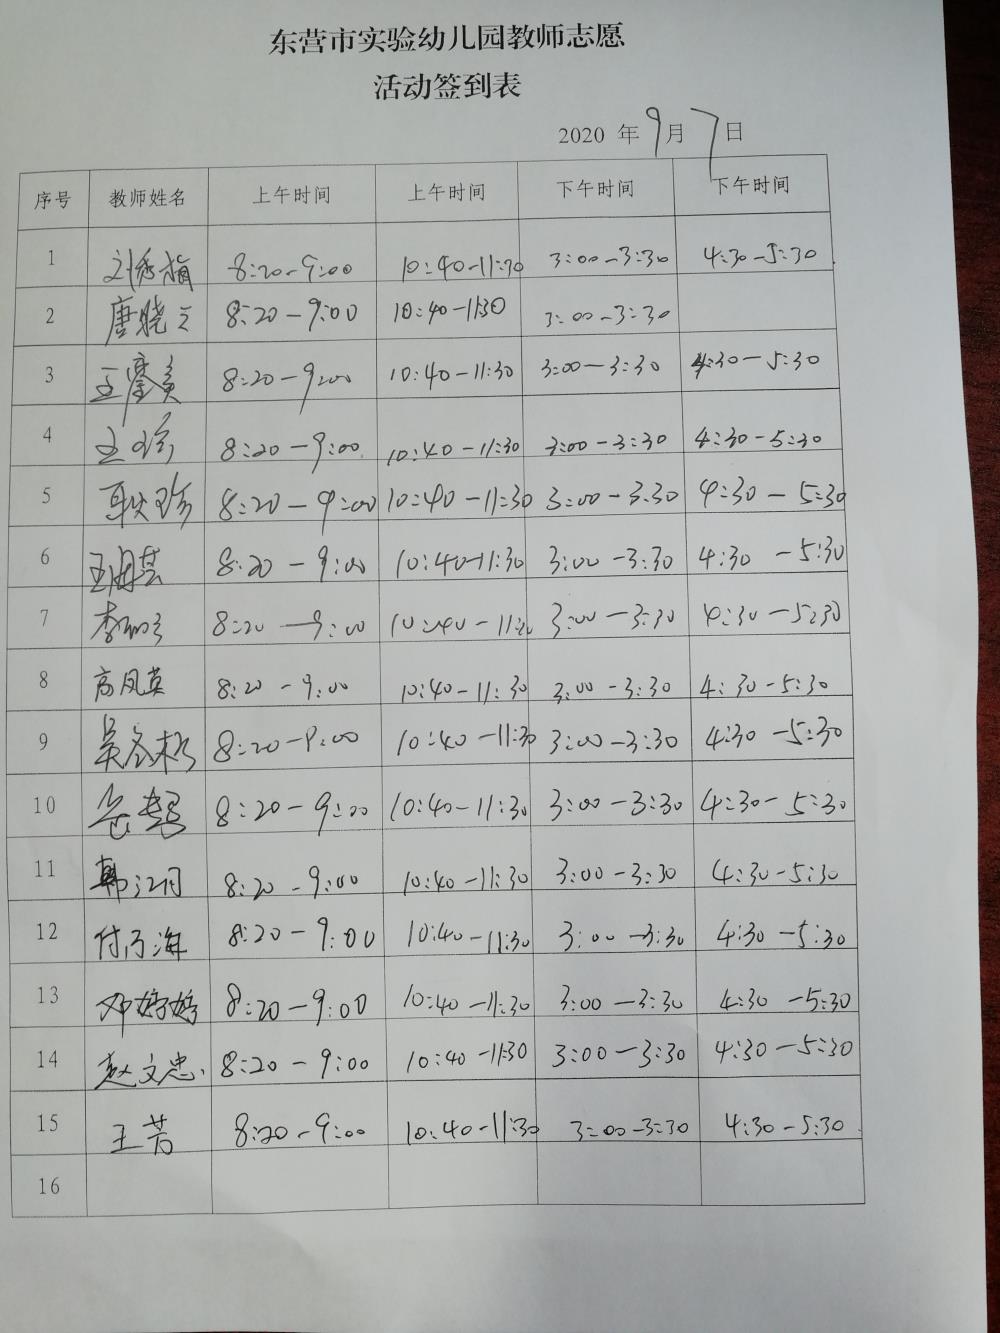 东营市实验幼儿园教师志愿
活动签到表
2020 年 9 月 7 日
序号 教师姓名 上午时间 上午时间 下午时间 下午时间
1 刘秀梅 8:20-9:00 10:40-11:30 3:00-3:30 4:30-5:30
2 唐晓 8:20-9:00 10:40-11:30 3:00-3:30
3 王 8:20-9:00 10:40-11:30 3:00-3:30 4:30-5:30
4 王 8:20-9:00 10:40-11:30 3:00-3:30 4:30-5:30
5 耿 珍 8:20-9:00 10:40-11:30 3:00-3:30 4:30-5:30
6 王 8:20-9:00 10:40-11:30 3:00-3:30 4:30-5:30
7 李 8:20-9:00 10:40-11:30 3:00-3:30 4:30-5:30
8 高凤英 8:20-9:00 10:40-11:30 3:00-3:30 4:30-5:30
9 吴 8:20-9:00 10:40-11:30 3:00-3:30 4:30-5:30
10 8:20-9:00 10:40-11:30 3:00-3:30 4:30-5:30
11 韩 8:20-9:00 10:40-11:30 3:00-3:30 4:30-5:30
12 付 海 8:20-9:00 10:40-11:30 3:00-3:30 4:30-5:30
13 邓婷婷 8:20-9:00 10:40-11:30 3:00-3:30 4:30-5:30
14 赵文忠 8:20-9:00 10:40-11:30 3:00-3:30 4:30-5:30
15 王芳 8:20-9:00 10:40-11:30 3:00-3:30 4:30-5:30
16